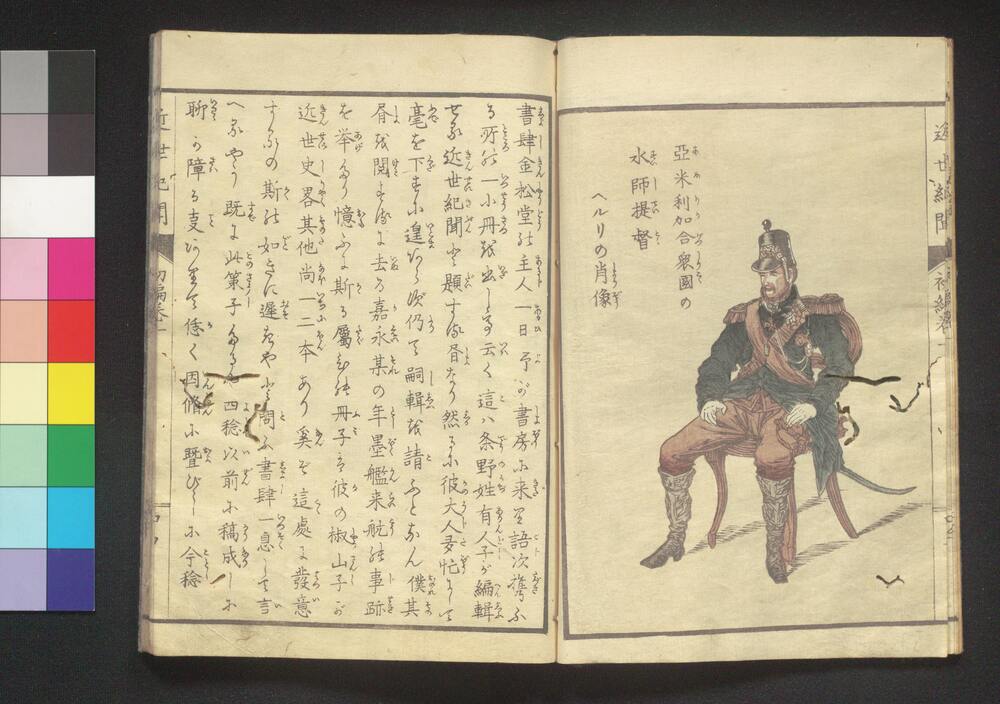 亞米利加合衆國の
水師提督
ヘルリの肖像
近世紀聞
初編卷一
書肆金松堂の主人一日予が書房に来り語次携ふ
る所の一小冊を出し云く這ハ条野姓有人子が編輯
せる近世紀聞と題する書なり然るに彼大人多忙にて
毫を下すに遑あらず仍て嗣輯を請ふとなん僕其
書を閲するに去る嘉永某の年墨艦来航の事跡
を挙たり憶ふに斯る屬の冊子ハ彼の椒山子が
近世史畧其他尚一二本あり奚ぞ這處に發意
するの斯の如きに遲きやと問ふ書肆一息して言
へるやう既に此策子たるや四稔以前に稿成しに
聊か障る支ありて怠く因循に曁びしに今稔
近世紀聞
初編卷一